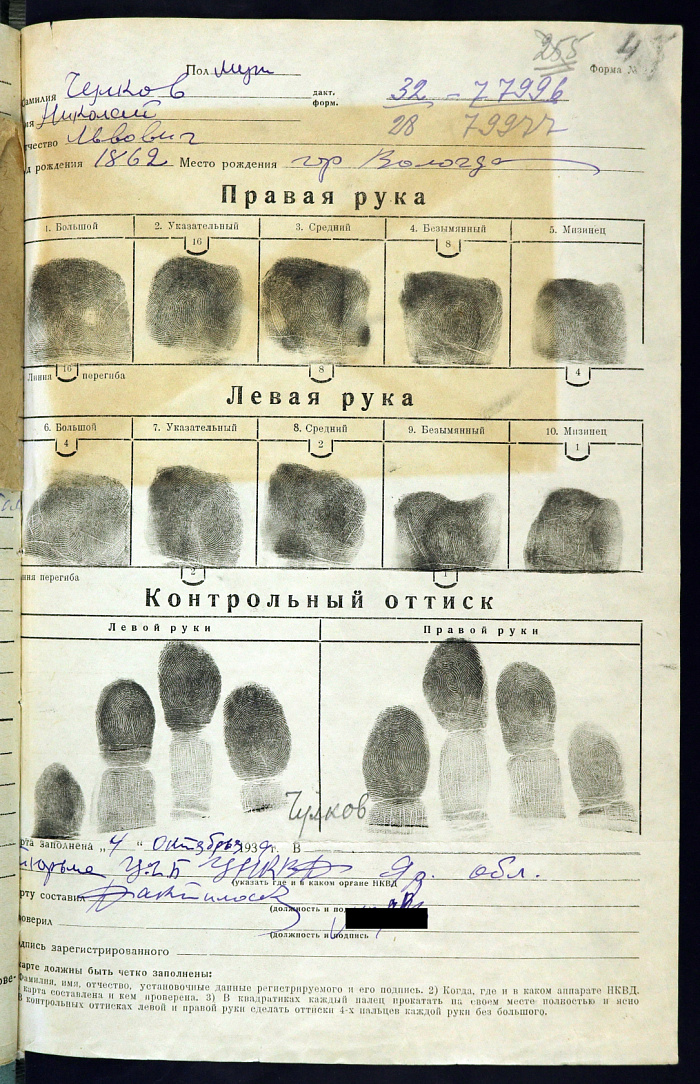 255 45
Пол муж Форма №
фамилия Чулков дакт. форм. 32 - 77996
ия Николай 28 79977
тчество Львович
д рождения 1862 Место рождения гор Вологда
Правая рука
1. Большой 2. Указательный 3. Средний 4. Безымянный 5. Мизинец
16 8
Линия 16 перегиба 8 4
Левая рука
6. Большой 7. Указательный 8. Средний 9. Безымянный 10. Мизинец
4 2 1
ния перегиба 2 1
Контрольный оттиск
Левой руки Правой руки
Чулков
рта заполнена „4“ октября 1939г. В
тюрьме УНКВД обл.
(указать где и в каком органе НКВД
рту составил
(должность и под
оверил
(должность и подпись
дпись зарегистрированного
карте должны быть четко заполнены:
Фамилия, имя, отчество, установочные данные регистрируемого и его подпись. 2) Когда, где и в каком аппарате НКВД.
карта составлена и кем проверена. 3) В квадратиках каждый палец прокатать на своем месте полностью и ясно
В контрольных оттисках левой и правой руки сделать оттиски 4-х пальцев каждой руки без большого.